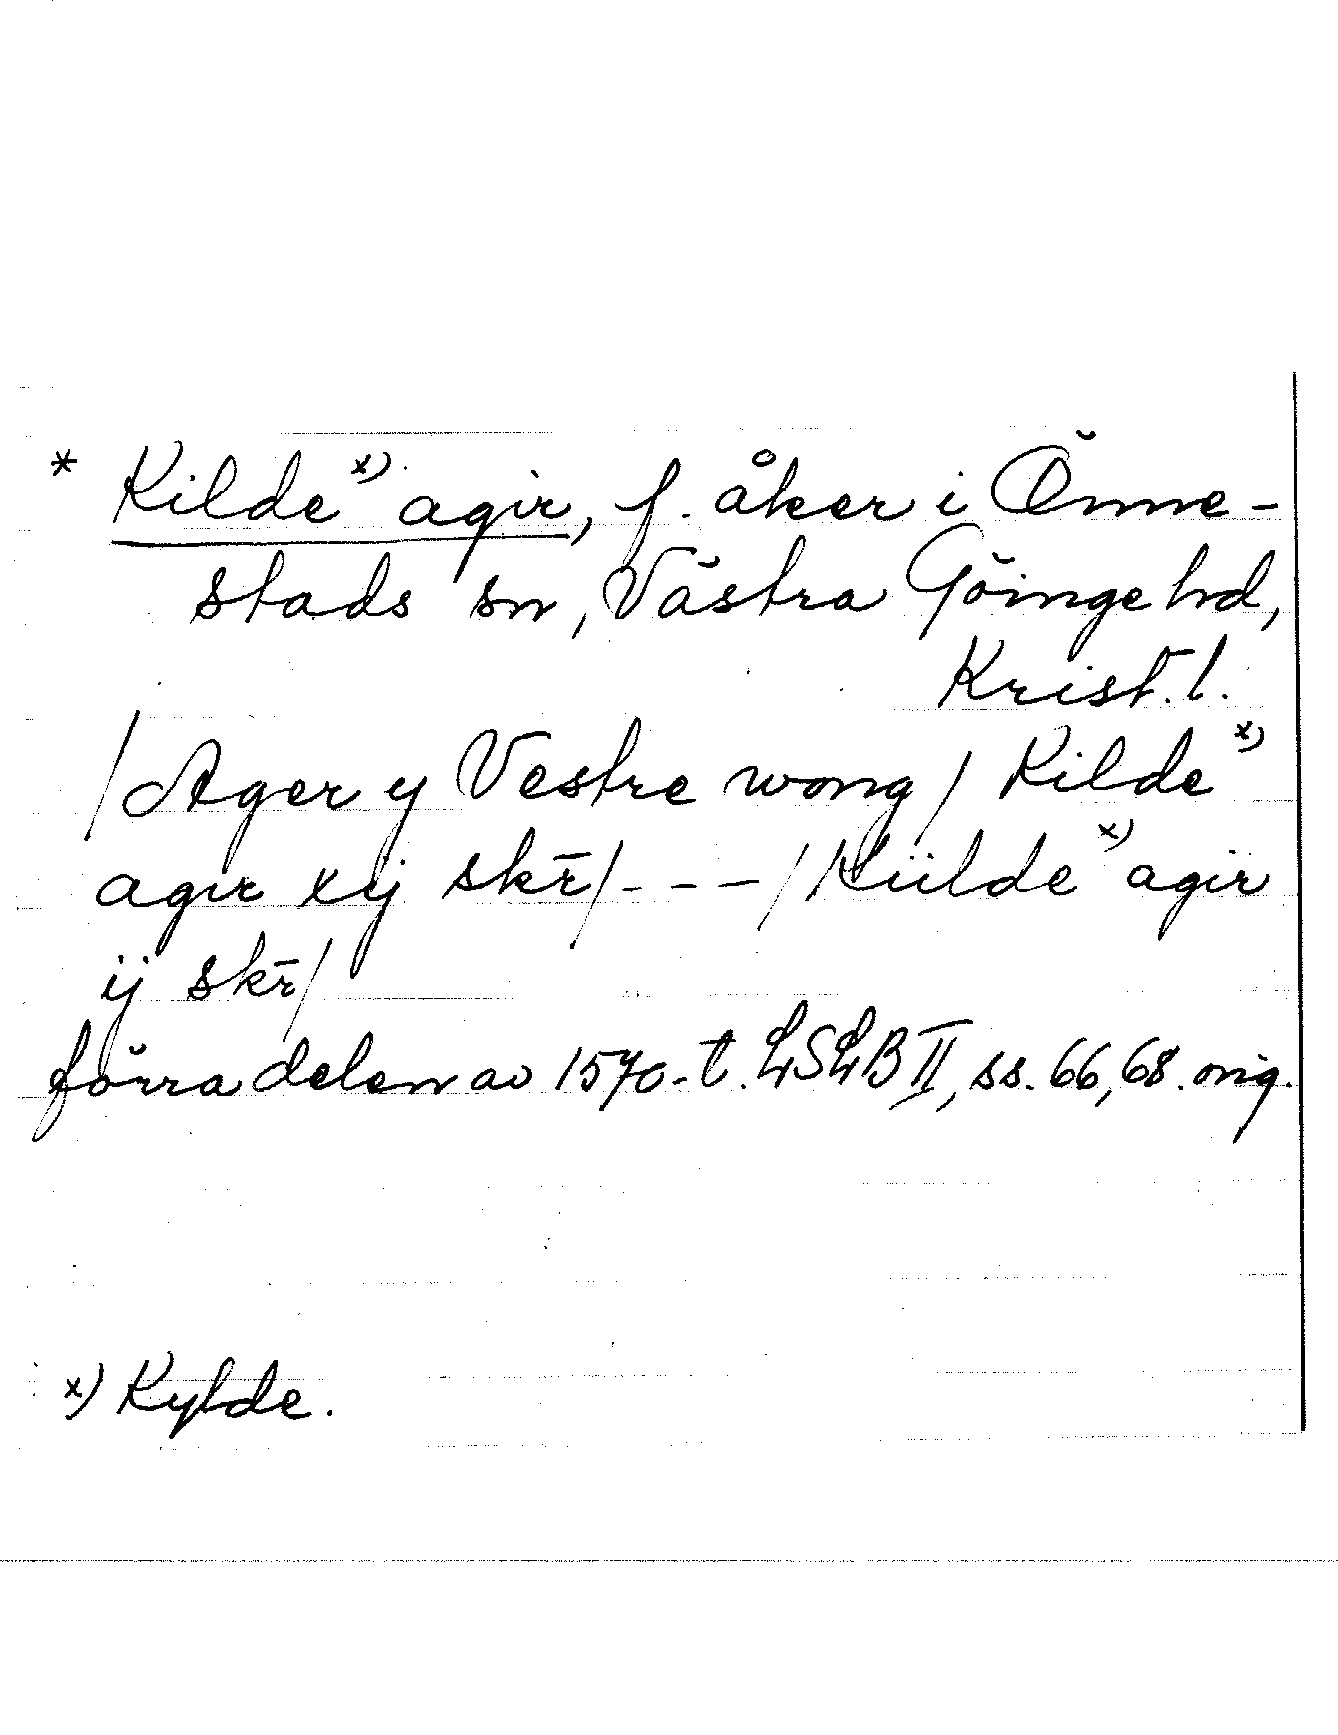 * Kilde x) agir, f. åker i Önne-
stads sn, Västra Göinge hd,
Krist. l.
/ Ager y Vestre wong / Kilde x)
agir xij skr̄ / - - - / Kiilde x) agir
ij skr̄ /
förra delen av 1570-t. LSLB II, ss. 66, 68. orig.
x) Kylde.